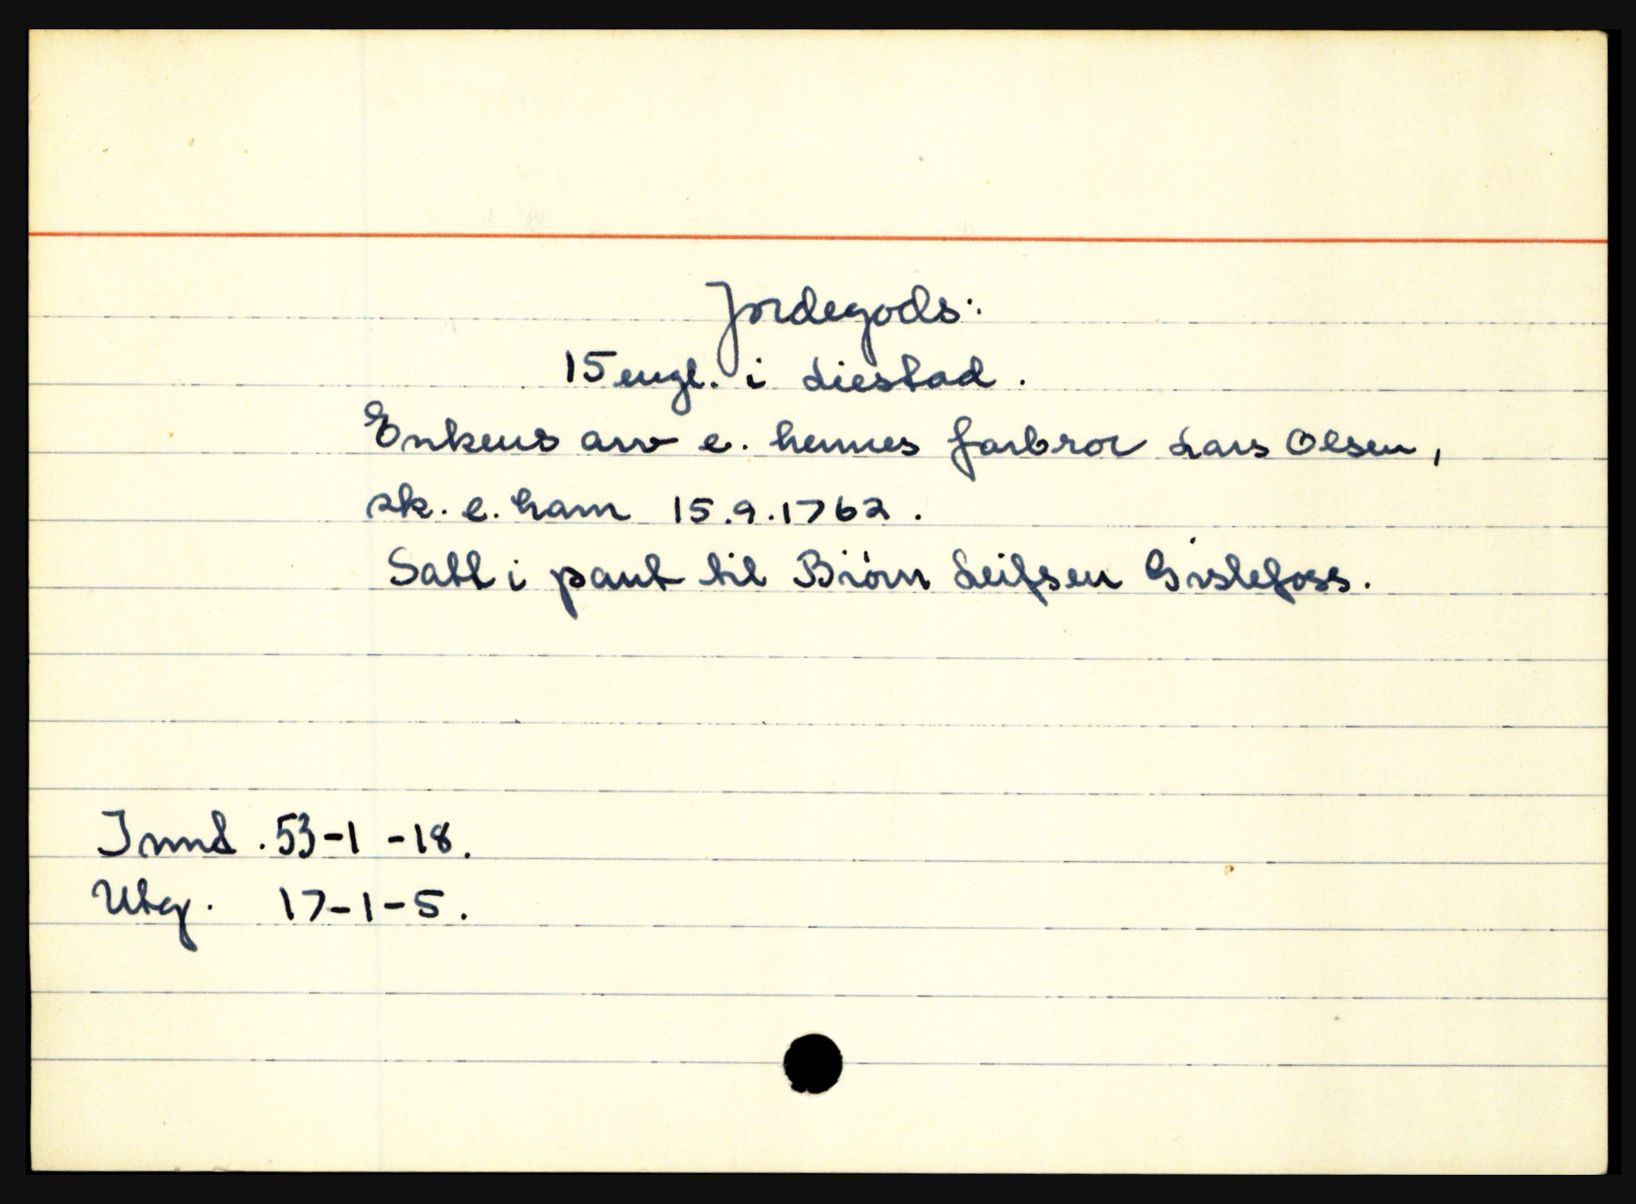 Jordegods:
15 engl. i Liestad.
Enkens arv e. hennes farbror Lars Olsen,
sk. e. ham 15.9.1762.
Satt i pant til Biörn Leifsen Gislefoss.
Innt. 53-1-18.
Utg. 17-1-5.